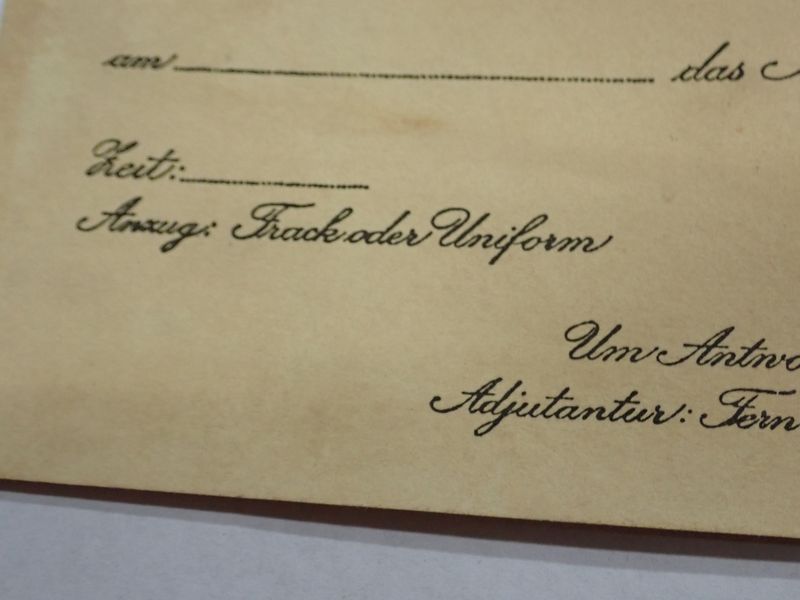 am das
Zeit:
Anzug: Frack oder Uniform
Um
Adjutantur: